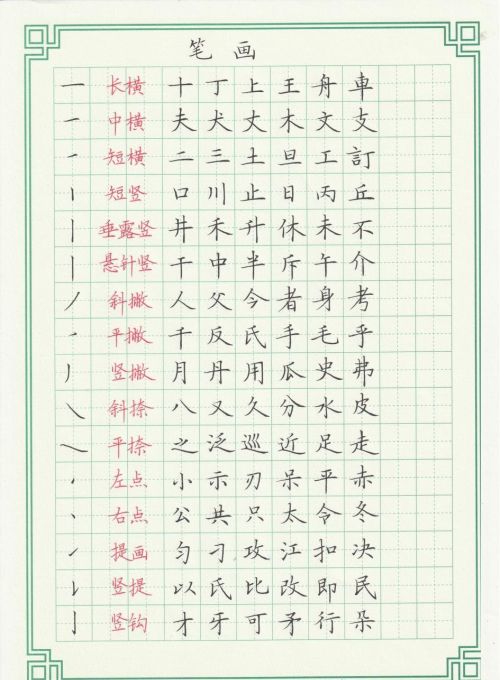 笔画
一 长横 十丁上王舟車
一 中横 夫犬丈木文支
一 短横 二三土旦工訂
丨 短竖 口川止日丙丘
丨 垂露竖 井禾升休未不
丨 悬针竖 干中半斥午介
丿 斜撇 人父今者身考
㇒ 平撇 千反氏手毛乎
丿 竖撇 月丹用瓜史弗
㇏ 斜捺 八又久分水皮
㇏ 平捺 之泛巡近足走
丶 左点 小示刃呆平赤
丶 右点 公共只太令冬
㇀ 提画 匀刁攻江扣决
𠄌 竖提 以氏比改即民
亅 竖钩 才牙可矛行朵